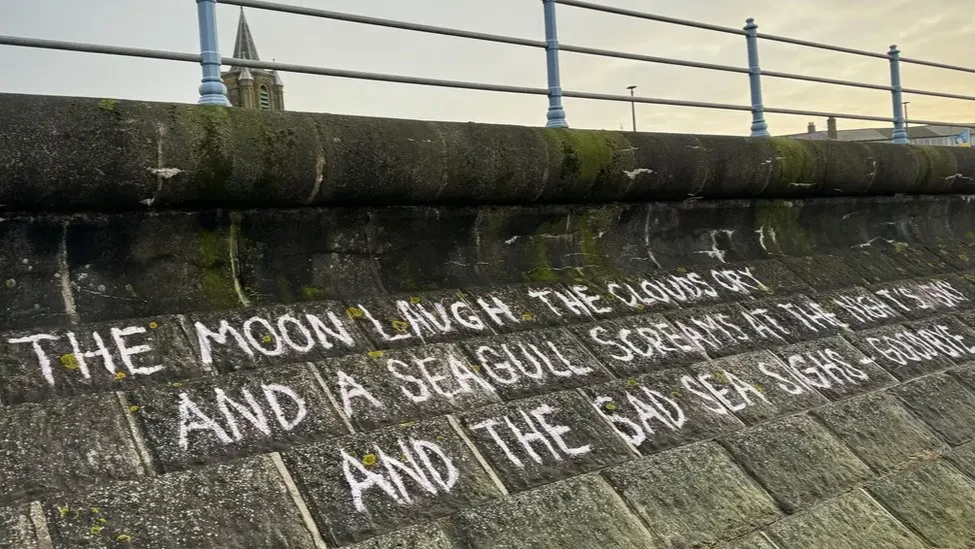 THE MOON LAUGHS THE CLOUDS CRY
AND A SEAGULL SCREAMS AT THE NIGHT'S SKY
AND THE SAD SEA SIGHS - GOODBYE